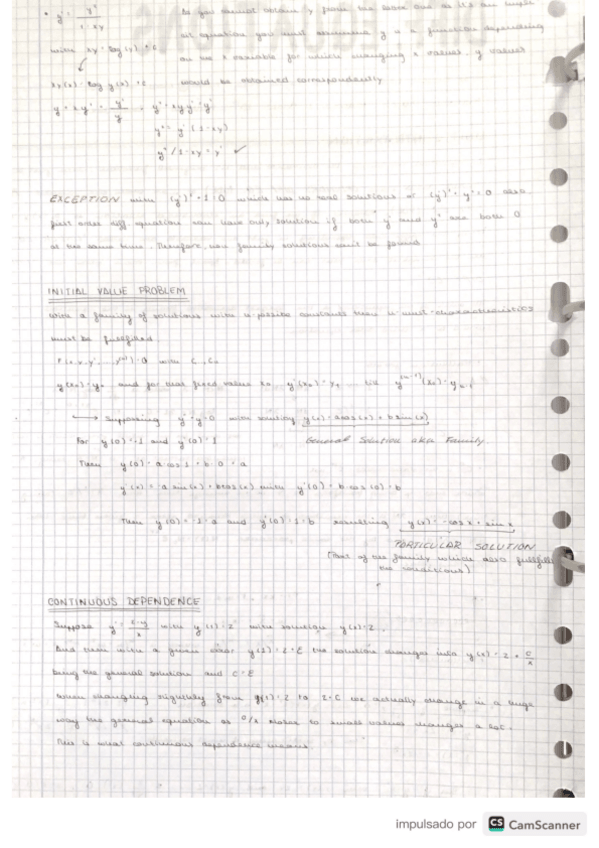 As you cannot obtain y from the
equation you must assume y as a function depending
on the x variable for which changing x values, y values
would be obtained correspondently
with xy = log(y) + c
xy(x) = log y(x) + c
y + xy' = y'/y
y² + xyy' = y'
y² = y'(1-xy)
y²/1-xy = y' ✓
EXCEPTION with (y')² + 1 = 0 which has no real solutions or (y')² + y² = 0 also
first order diff. equation can have only solution if both y and y' are both 0
at the same time. Therefore, no family solutions can't be found
INITIAL VALUE PROBLEM
With a family of solutions with n possible constants then n characteristics
must be fulfilled
y(x₀) = y₀ and for that fixed value x₀, y'(x₀) = y₁ ... till
→ Supposing y'' + y = 0 with solution y(x) = a cos(x) + b sin(x)
For y(0) = -1 and y'(0) = 1
General Solution aka Family
Then y(0) = a · cos 1 + b · 0 = a
y'(x) = -a sin(x) + b cos(x) with y'(0) = b · cos(0) = b
Then y(0) = -1 = a and y'(0) = 1 = b resulting y(x) = -cos x + sin x
PARTICULAR SOLUTION
(Part of the family which also fulfills
the conditions)
CONTINUOUS DEPENDENCE
Suppose with solution y(x) = 2.
And then with a given error y(1) = 2 + ε the solution changes into y(x) = 2 + c/x
being the general solution and c = ε
When changing slightly from to 2 + ε we actually change in a huge
way the general equation as c/x closer to small values changes a lot.
This is what continuous dependence means.
impulsado por CS CamScanner